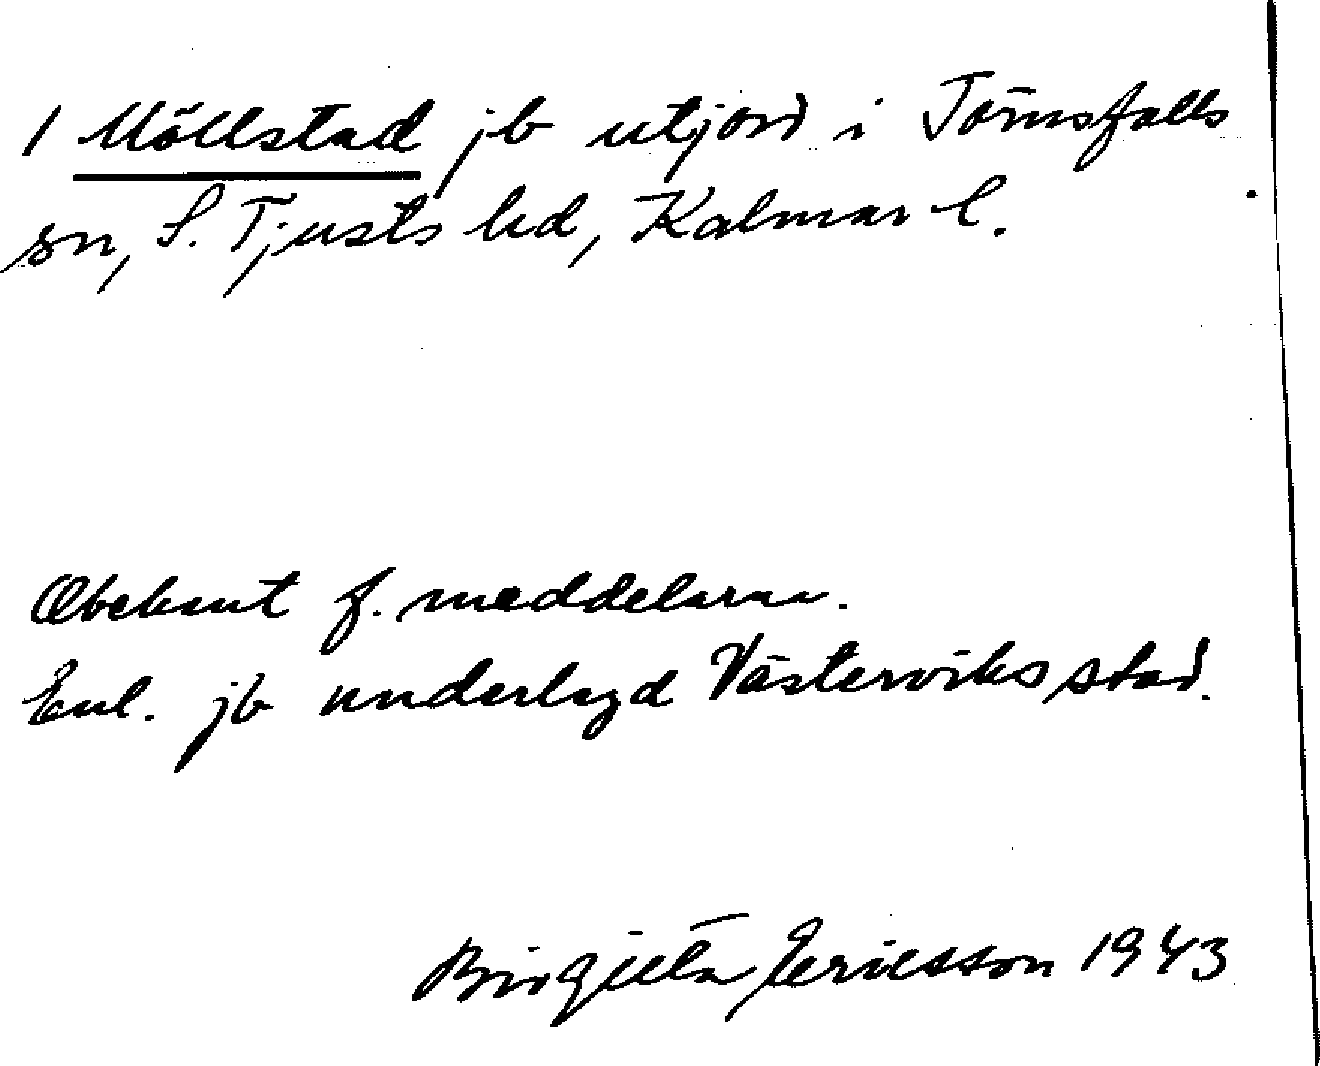 1 Möllstad jb utjord i Törnsfalls
sn, S. Tjusts hd, Kalmar l.
Obekant f. meddelarna.
Enl. jb underlagd Västerviks stad.
Birgitta Ericsson 1943